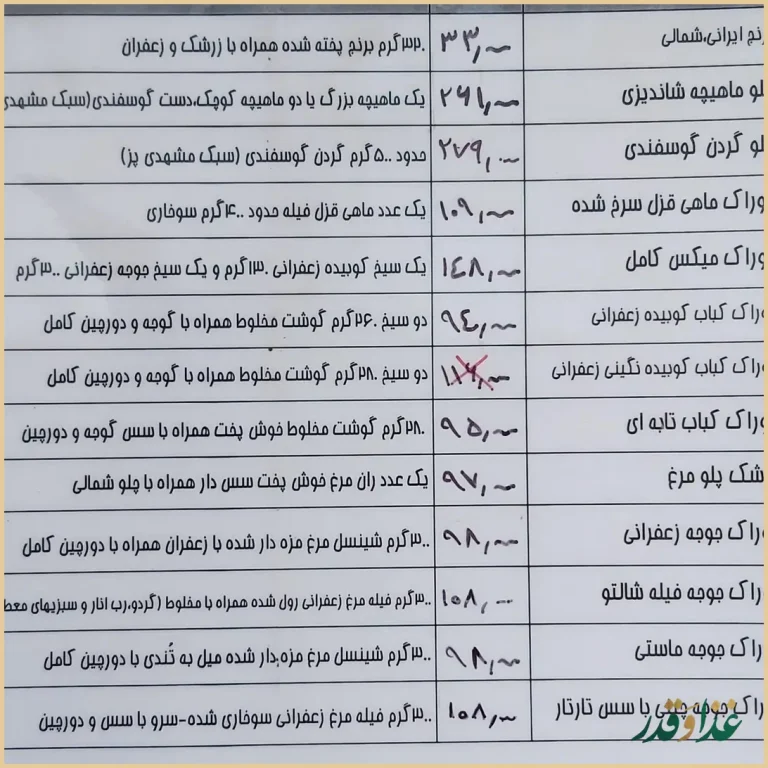 رنج ایرانی،شمالی ۳۳,۰۰۰ ۳۲۰گرم برنج پخته شده همراه با زرشک و زعفران
لو ماهیچه شاندیزی ۲۶۱,۰۰۰ یک ماهیچه بزرگ یا دو ماهیچه کوچک،دست گوسفندی(سبک مشهدی
لو گردن گوسفندی ۲۷۹,۰۰۰ حدود ۵۰۰گرم گردن گوسفندی (سبک مشهدی پز)
وراک ماهی قزل سرخ شده ۱۰۹,۰۰۰ یک عدد ماهی قزل فیله حدود ۴۰۰گرم سوخاری
وراک میکس کامل ۱۴۸,۰۰۰ یک سیخ کوبیده زعفرانی ۱۳۰گرم و یک سیخ جوجه زعفرانی ۳۰۰گرم
وراک کباب کوبیده زعفرانی ۹۴,۰۰۰ دو سیخ ۲۶۰گرم گوشت مخلوط همراه با گوجه و دورچین کامل
وراک کباب کوبیده نگینی زعفرانی دو سیخ ۲۸۰گرم گوشت مخلوط همراه با گوجه و دورچین کامل
وراک کباب تابه ای ۹۵,۰۰۰ ۲۸۰گرم گوشت مخلوط خوش پخت همراه با سس گوجه و دورچین
شک پلو مرغ ۹۷,۰۰۰ یک عدد ران مرغ خوش پخت سس دار همراه با چلو شمالی
راک جوجه زعفرانی ۹۸,۰۰۰ ۳۰۰گرم شینسل مرغ مزه دار شده با زعفران همراه با دورچین کامل
راک جوجه فیله شالتو ۱۰۸,۰۰۰ ۳۰۰گرم فیله مرغ زعفرانی رول شده همراه با مخلوط (گردو،رب انار و سبزیهای معط
راک جوجه ماستی ۹۸,۰۰۰ ۳۰۰گرم شینسل مرغ مزه دار شده میل به تُندی با دورچین کامل
راک جوجه چینی با سس تارتار ۱۰۸,۰۰۰ ۳۰۰گرم فیله مرغ زعفرانی سوخاری شده-سرو با سس و دورچین
غذا و قدر